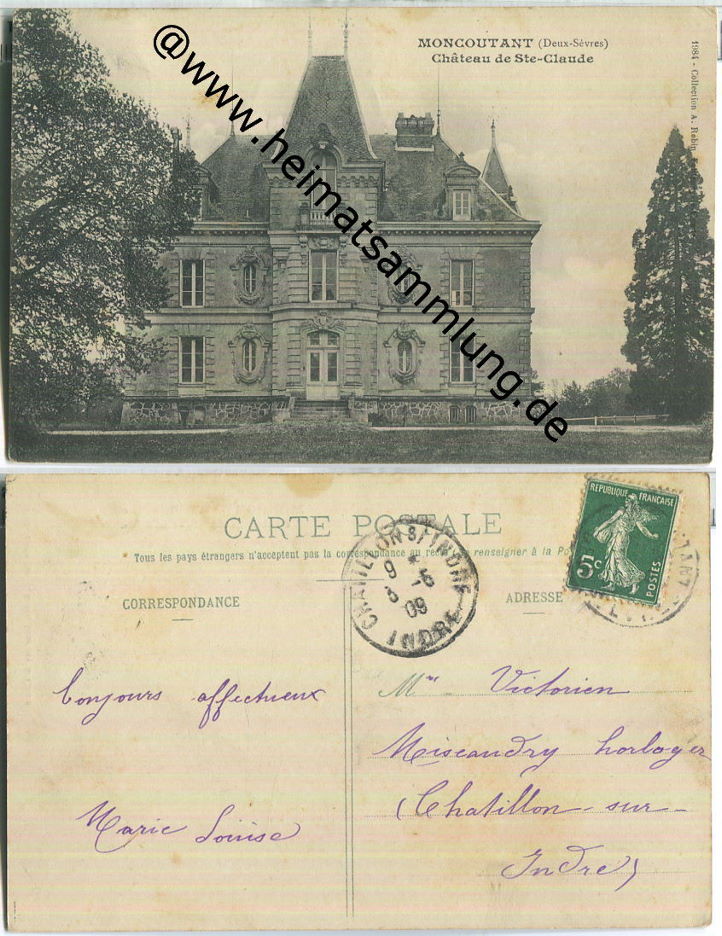 MONCOUTANT (Deux-Sèvres)
Château de Ste-Claude
1984 - Collection A. Robin
@www.heimatsammlung.de
CARTE POSTALE
Tous les pays étrangers n'acceptent pas la correspondance au renseigner à la
CORRESPONDANCE
ADRESSE
REPUBLIQUE FRANÇAISE
5c
POSTES
CHATILLON S/ INDRE
INDRE
09
Bonjours affectueux
Marie Louise
Mme Victorien
Miscandry horloger
(Chatillon-sur-
Indre)